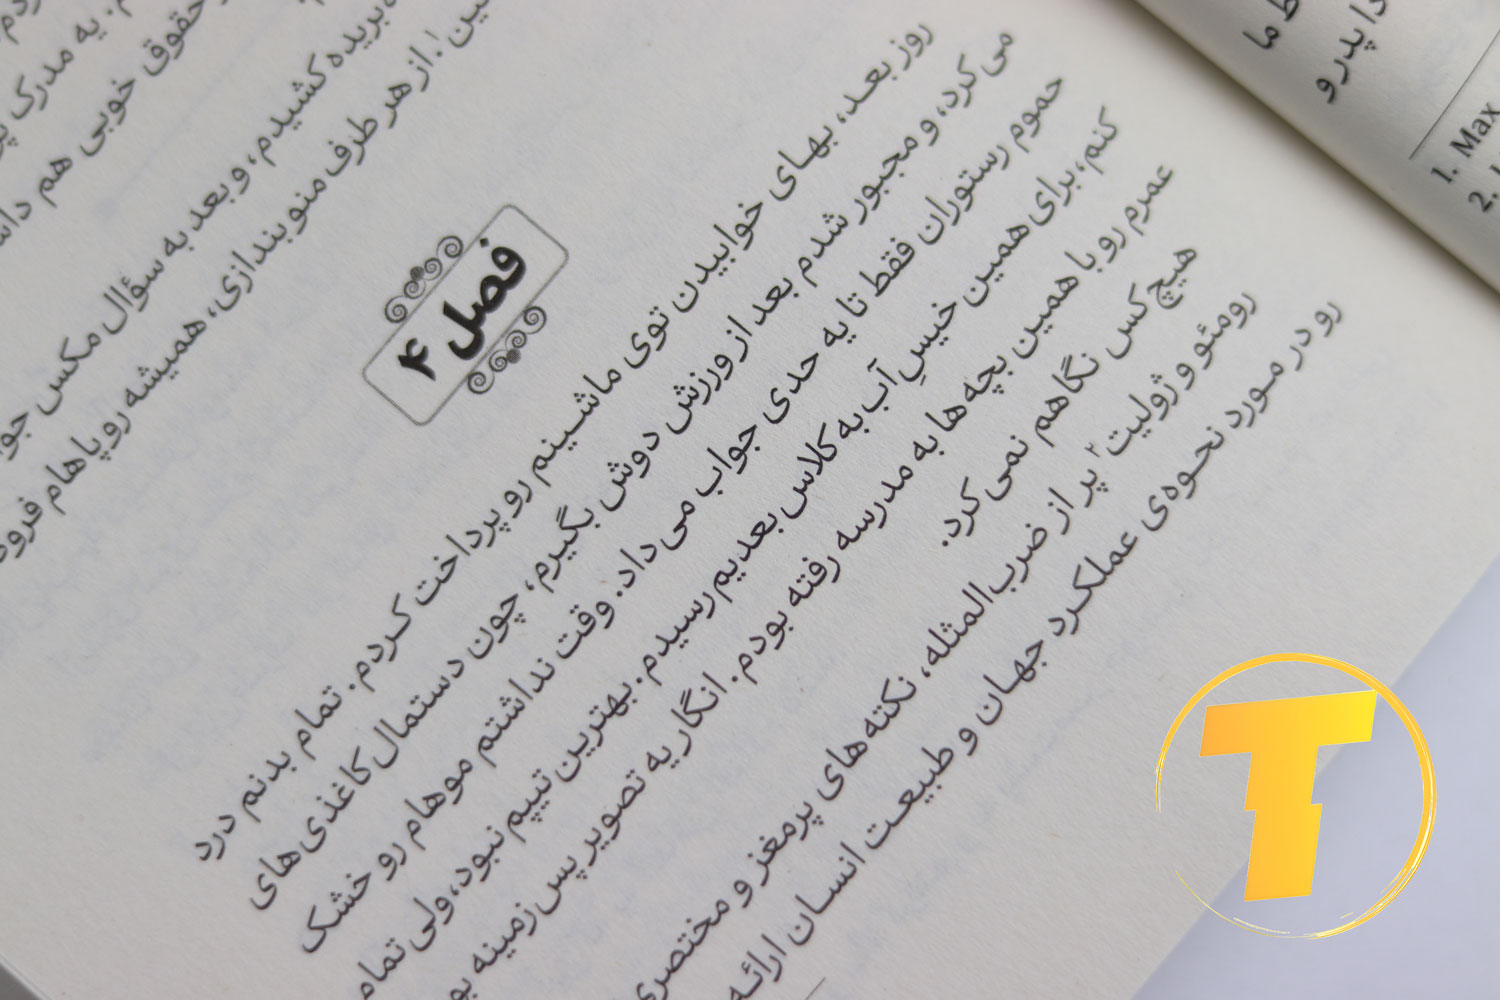 بریده کشیدم، و بعد به سؤال مکس
از هر طرف منو بندازی، همیشه رو پاهام
حقوق خوبی هم
یه مدرک
فصل ۴
روز بعد، بهای خوابیدن توی ماشینم رو پرداخت کردم. تمام بدنم درد
می‌کرد، و مجبور شدم بعد از ورزش دوش بگیرم، چون دستمال کاغذی های
حموم رستوران فقط تا یه حدی جواب می‌داد. وقت نداشتم موهام رو خشک
کنم، برای همین خیسِ آب به کلاس بعدیم رسیدم. بهترین تیپم نبود، ولی تمام
عمرم رو با همین بچه‌ها به مدرسه رفته بودم. انگار یه تصویر پس‌زمینه
هیچ‌کس نگاهم نمی‌کرد.
رومئو و ژولیت۲ پر از ضرب‌المثله، نکته‌های پرمغز و مختصری
رو در مورد نحوه‌ی عملکرد جهان و طبیعت انسان ارائه
ما
پدر و
1. Max
2.
T